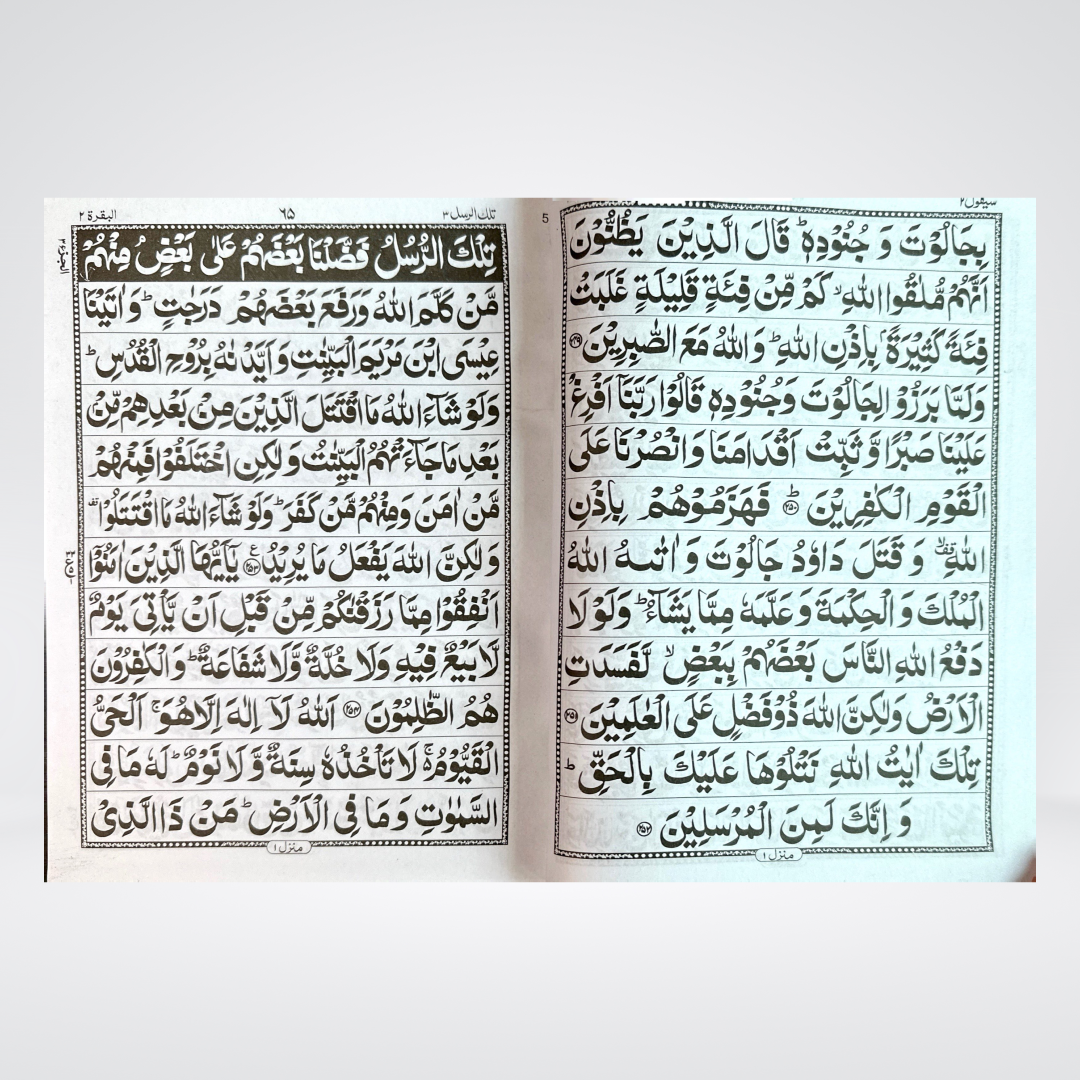 سیقول۲
بِجَالُوۡتَ وَ جُنُوۡدِهٖ ؕ قَالَ الَّذِیۡنَ یَظُنُّوۡنَ
اَنَّهُمۡ مُّلٰقُوا اللّٰهِ ۙ كَمۡ مِّنۡ فِئَةٍ قَلِیۡلَةٍ غَلَبَتۡ
فِئَةً كَثِیۡرَةًۢ بِاِذۡنِ اللّٰهِ ؕ وَ اللّٰهُ مَعَ الصّٰبِرِیۡنَ ﴿۲۴۹﴾
وَلَمَّا بَرَزُوۡا لِجَالُوۡتَ وَجُنُوۡدِهٖ قَالُوۡا رَبَّنَاۤ اَفۡرِغۡ
عَلَیۡنَا صَبۡرًا وَّ ثَبِّتۡ اَقۡدَامَنَا وَانۡصُرۡنَا عَلَی
الۡقَوۡمِ الۡكٰفِرِیۡنَ ﴿۲۵۰﴾ ؕ فَهَزَمُوۡهُمۡ بِاِذۡنِ
اللّٰهِ ۟ۙ وَ قَتَلَ دَاوٗدُ جَالُوۡتَ وَ اٰتٰىهُ اللّٰهُ
الۡمُلۡكَ وَ الۡحِكۡمَةَ وَ عَلَّمَهٗ مِمَّا یَشَآءُ ؕ وَ لَوۡ لَا
دَفۡعُ اللّٰهِ النَّاسَ بَعۡضَهُمۡ بِبَعۡضٍ ۙ لَّفَسَدَتِ
الۡاَرۡضُ وَلٰكِنَّ اللّٰهَ ذُوۡ فَضۡلٍ عَلَی الۡعٰلَمِیۡنَ ﴿۲۵۱﴾
تِلۡكَ اٰیٰتُ اللّٰهِ نَتۡلُوۡهَا عَلَیۡكَ بِالۡحَقِّ ؕ
وَ اِنَّكَ لَمِنَ الۡمُرۡسَلِیۡنَ ﴿۲۵۲﴾
منزل ۱
5
تلك الرسل ۳
۶۵
البقرة ۲
تِلۡكَ الرُّسُلُ فَضَّلۡنَا بَعۡضَهُمۡ عَلٰی بَعۡضٍ ۘ مِنۡهُمۡ
مَّنۡ كَلَّمَ اللّٰهُ وَرَفَعَ بَعۡضَهُمۡ دَرَجٰتٍ ؕ وَ اٰتَیۡنَا
عِیۡسَی ابۡنَ مَرۡیَمَ الۡبَیِّنٰتِ وَ اَیَّدۡنٰهُ بِرُوۡحِ الۡقُدُسِ ؕ
وَلَوۡ شَآءَ اللّٰهُ مَا اقۡتَتَلَ الَّذِیۡنَ مِنۡۢ بَعۡدِهِمۡ مِّنۡۢ
بَعۡدِ مَا جَآءَتۡهُمُ الۡبَیِّنٰتُ وَ لٰكِنِ اخۡتَلَفُوۡا فَمِنۡهُمۡ
مَّنۡ اٰمَنَ وَمِنۡهُمۡ مَّنۡ كَفَرَ ؕ وَلَوۡ شَآءَ اللّٰهُ مَا اقۡتَتَلُوۡا ۟
وَ لٰكِنَّ اللّٰهَ یَفۡعَلُ مَا یُرِیۡدُ ﴿۲۵۳﴾ ع یٰۤاَیُّهَا الَّذِیۡنَ اٰمَنُوۡۤا
اَنۡفِقُوۡا مِمَّا رَزَقۡنٰكُمۡ مِّنۡ قَبۡلِ اَنۡ یَّاۡتِیَ یَوۡمٌ
لَّا بَیۡعٌ فِیۡهِ وَلَا خُلَّةٌ وَّلَا شَفَاعَةٌ ؕ وَ الۡكٰفِرُوۡنَ
هُمُ الظّٰلِمُوۡنَ ﴿۲۵۴﴾ اَللّٰهُ لَاۤ اِلٰهَ اِلَّا هُوَ ۚ اَلۡحَیُّ
الۡقَیُّوۡمُ ۬ۚ لَا تَاۡخُذُهٗ سِنَةٌ وَّ لَا نَوۡمٌ ؕ لَهٗ مَا فِی
السَّمٰوٰتِ وَ مَا فِی الۡاَرۡضِ ؕ مَنۡ ذَا الَّذِیۡ
منزل ۱